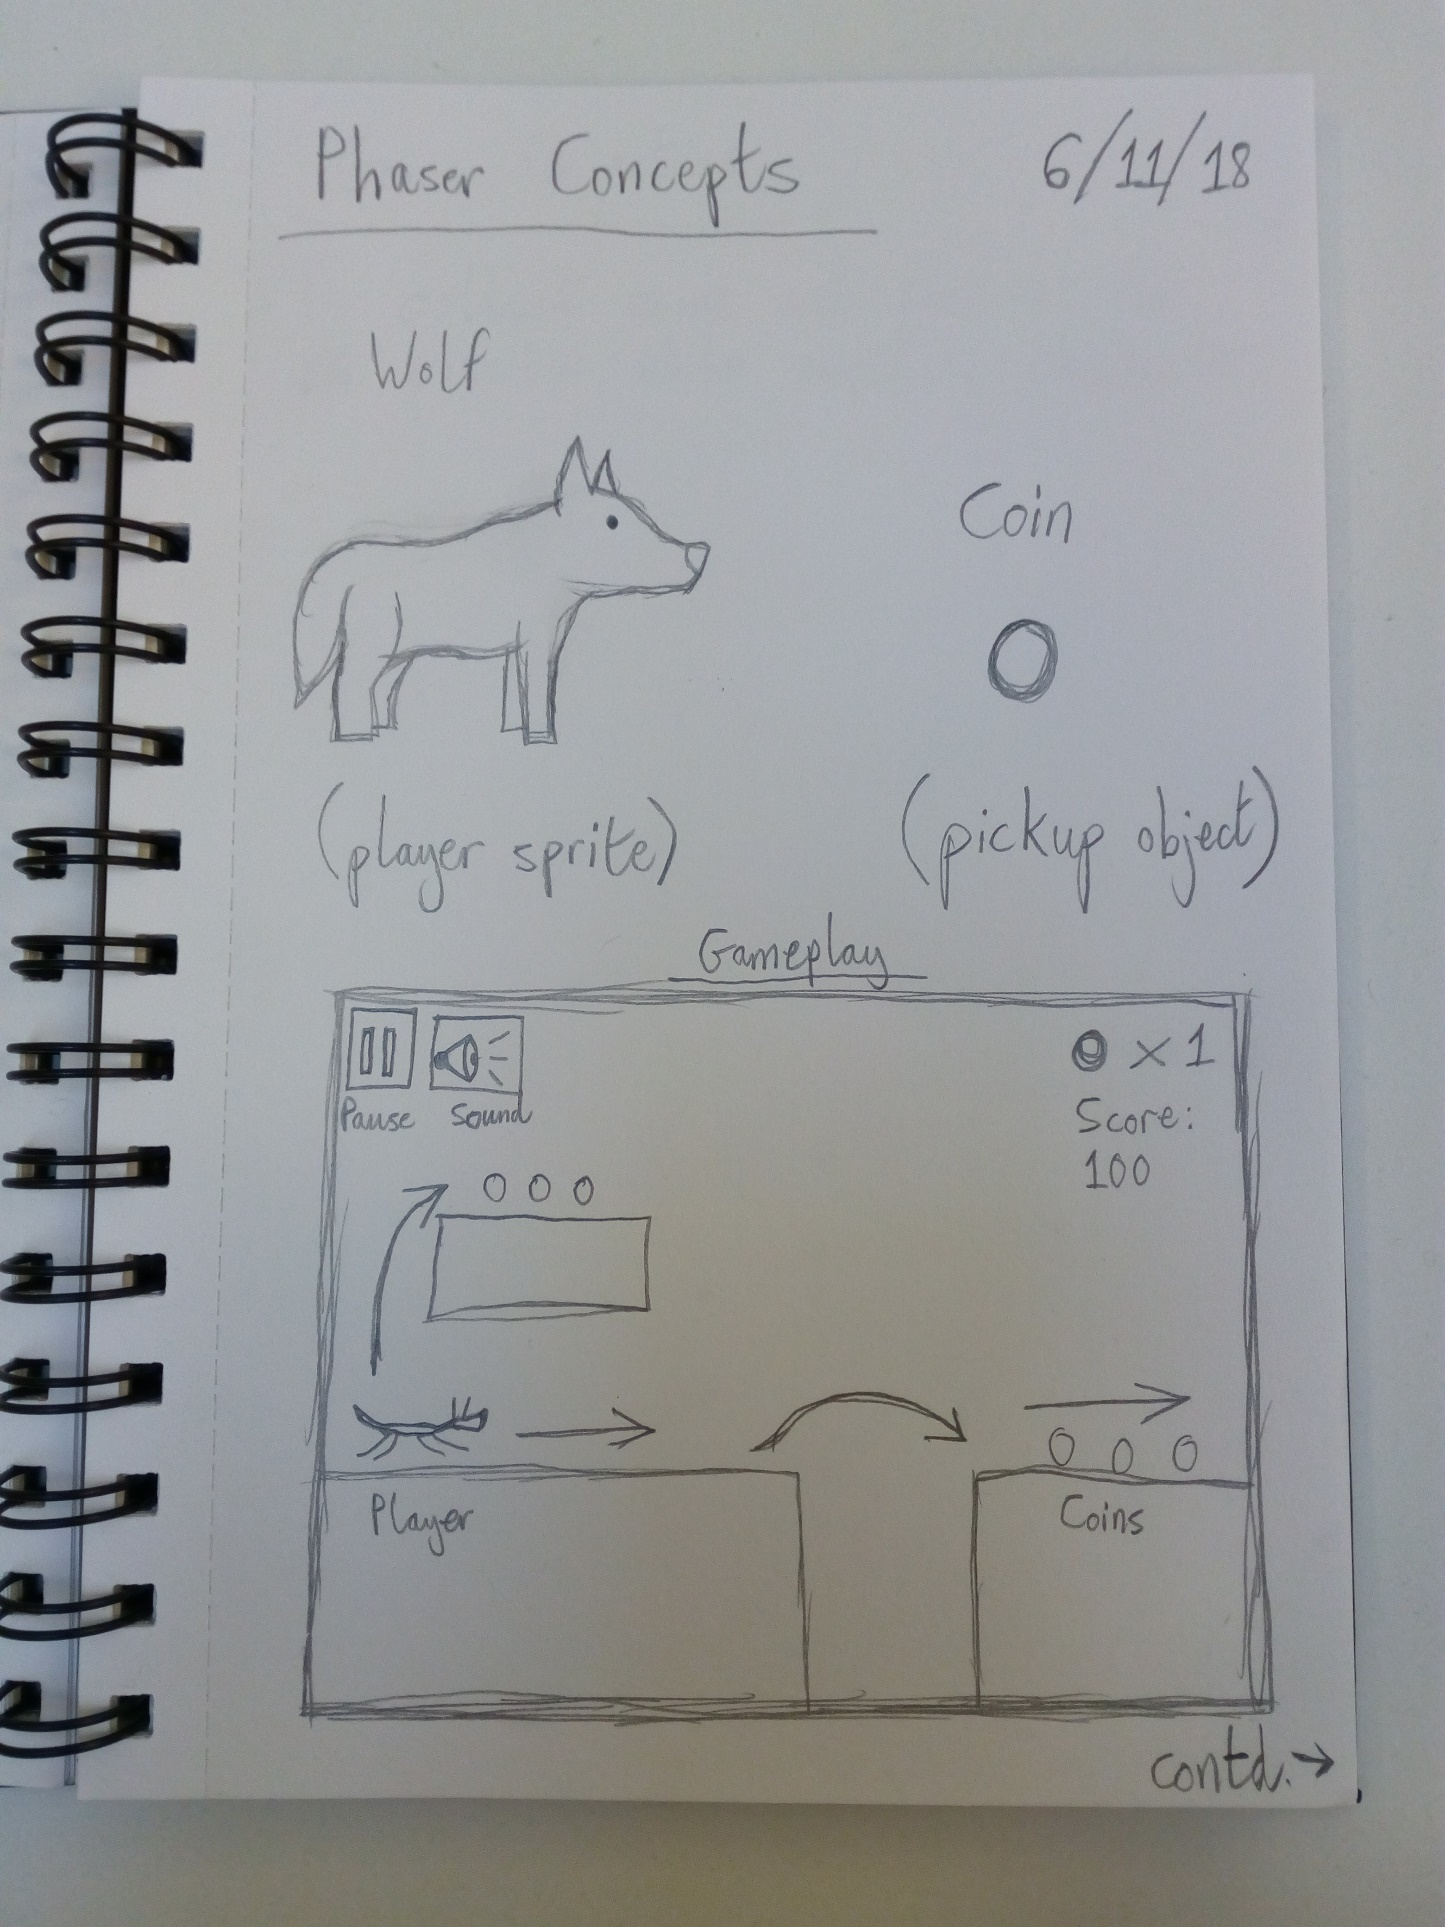 Phaser Concepts 6/11/18
Wolf
Coin
(player sprite) (pickup object)
Gameplay
x 1
Pause Sound
Score:
100
Player
Coins
contd.→